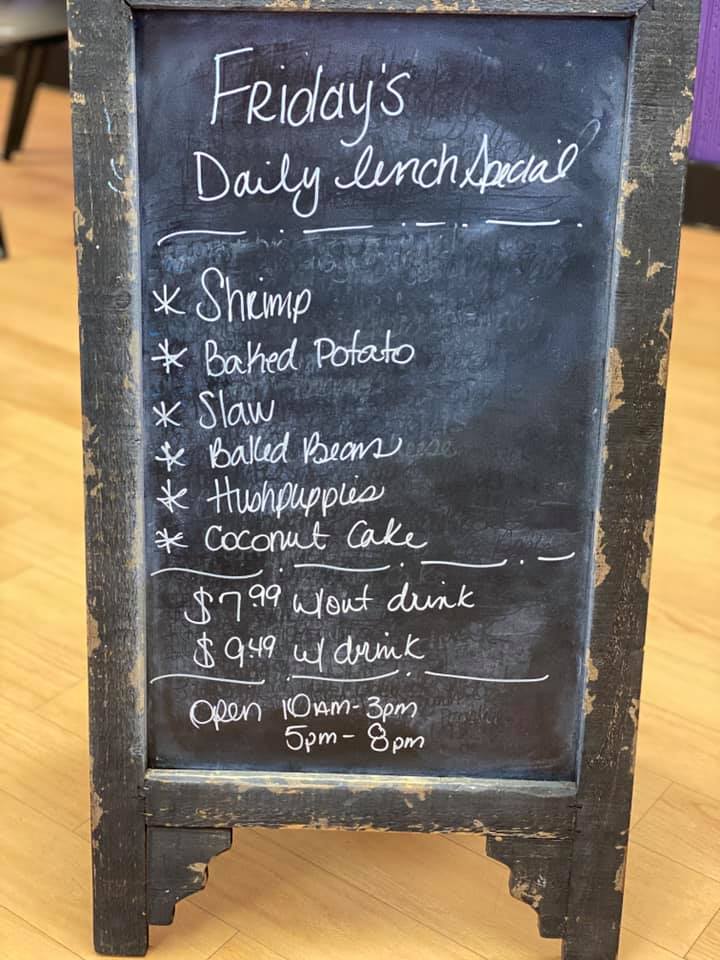 Friday's
Daily lunch Special
* Shrimp
* Baked Potato
* Slaw
* Baked Beans
* Hushpuppies
* Coconut Cake
$7.99 w/out drink
$9.49 w/ drink
Open 10AM-3pm
5pm-8pm